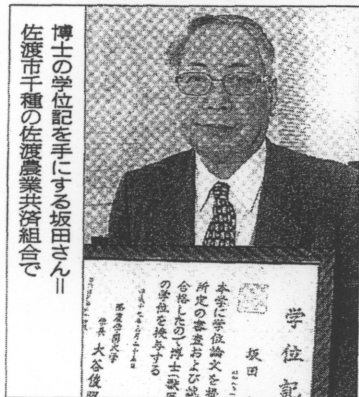 博士の学位記を手にする坂田さん＝
佐渡市千種の佐渡農業共済組合で
学位記
坂田
本学に学位論文を提
所定の審査および試
合格したので博士（獣医
の学位を授与する
酪農学園大学
学長 大谷俊昭